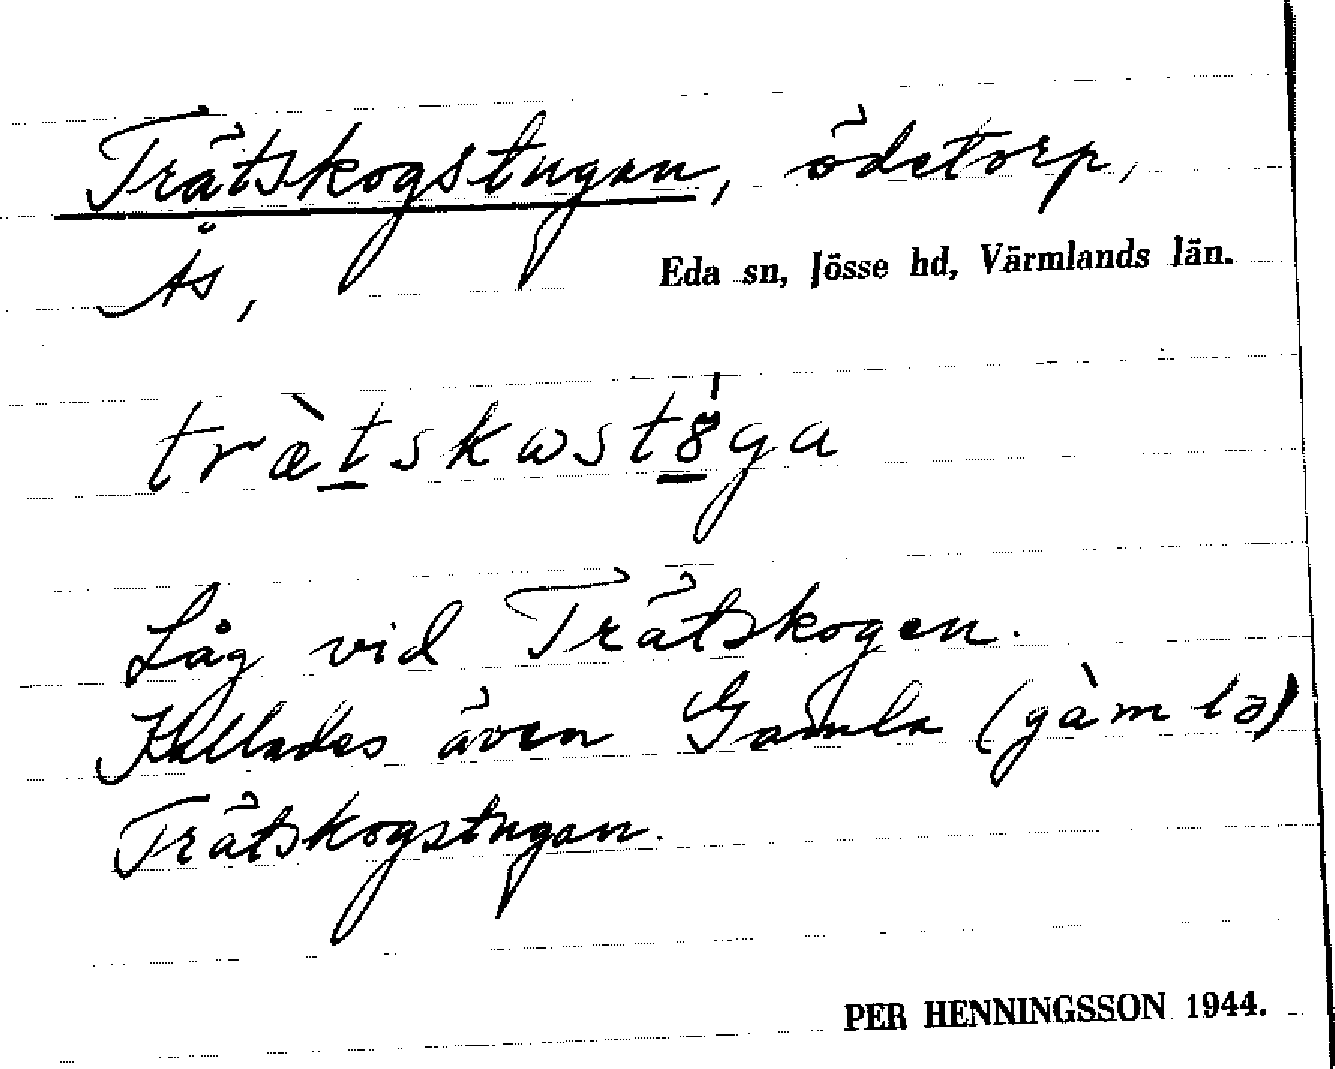 Trätskogstugan, ödetorp,
Ås,
Eda sn, Jösse hd, Värmlands län.
træ̀tskωstȣ̍ga
Låg vid Trätskogen.
Kallades även Gamla (gàmlə)
Trätskogstugan.
PER HENNINGSSON 1944.